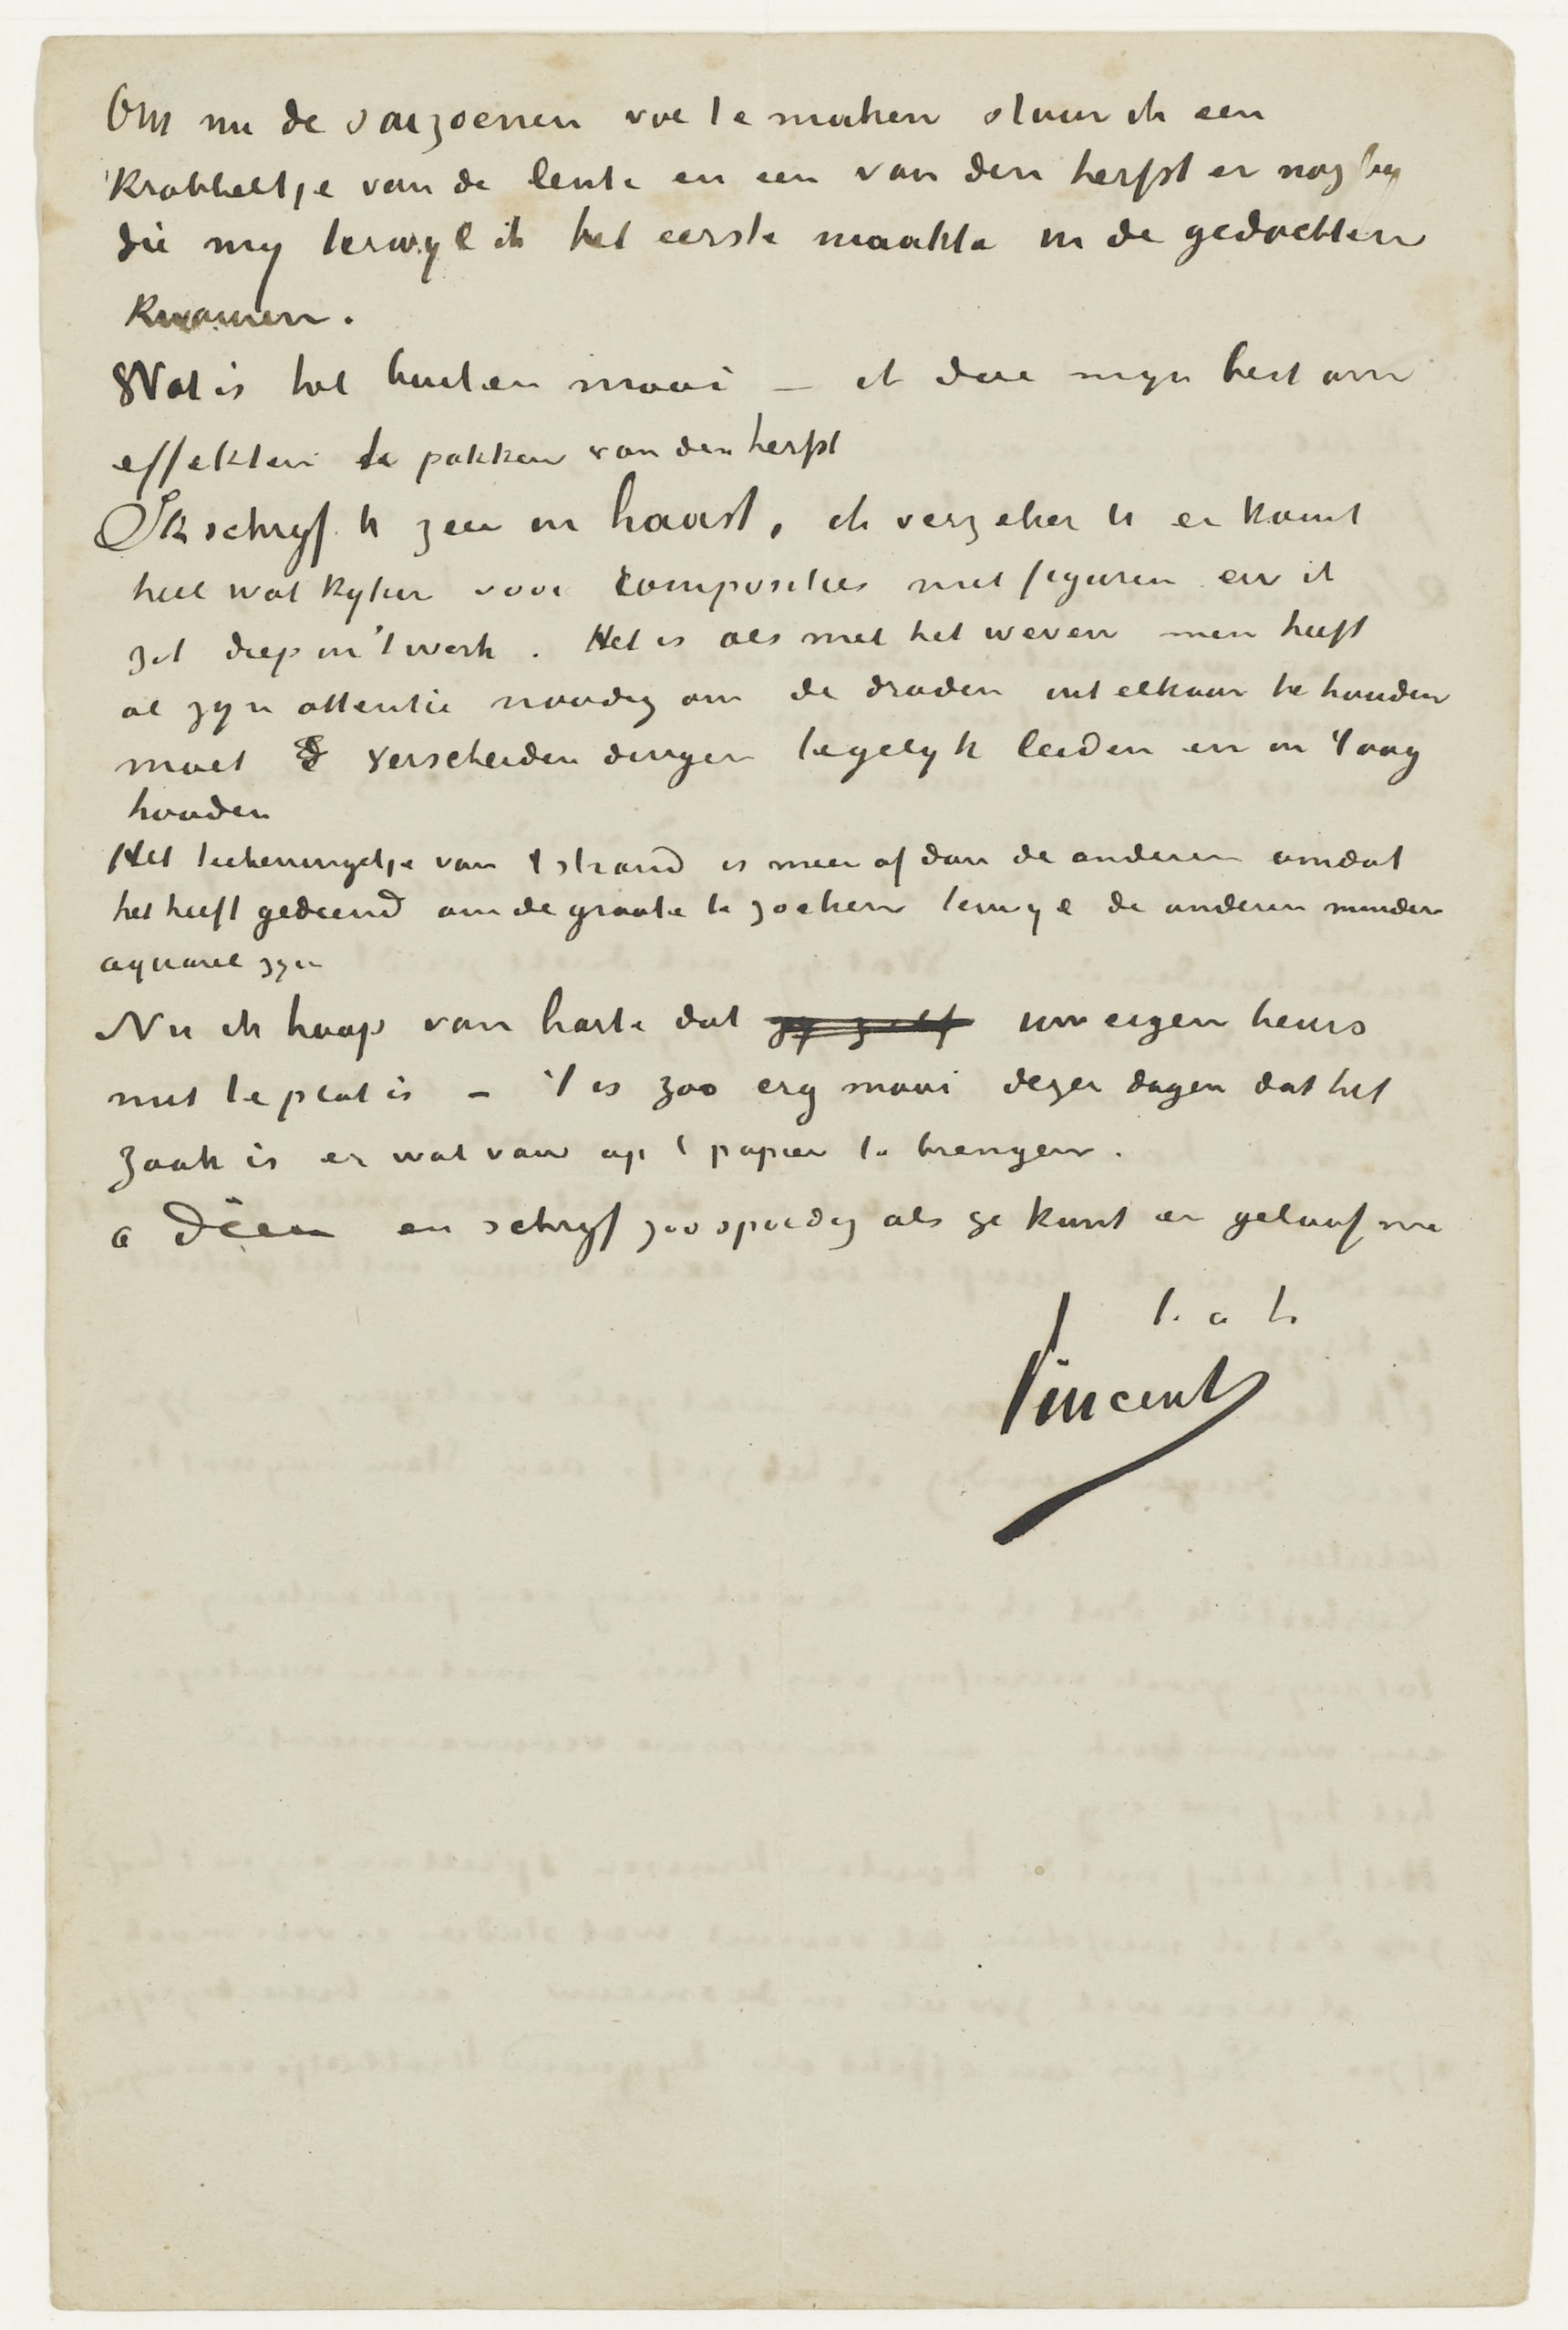 Om nu de saizoenen vol te maken stuur ik een
krabbeltje van de lente en een van den herfst er nog bij
die mij terwijl ik het eerste maakte in de gedachten
kwamen.
Wat is het buiten mooi – ik doe mijn best om
effekten te pakken van den herfst
Ik schrijf U zeer in haast, ik verzeker U er komt
heel wat kijken voor composities met figuren en ik
zit diep in 't werk. Het is als met het weven men heeft
al zijn attentie noodig om de draden uit elkaar te houden
moet verscheiden dingen tegelijk leiden en in 't oog
houden
Het teekeningetje van t strand is meer af dan de anderen omdat
het heeft gediend om de groote te zoeken terwijl de anderen minder
aquarel zijn
Nu ik hoop van harte dat gij zelf uw eigen beurs
niet te plat is – 't is zoo erg mooi dezer dagen dat het
zaak is er wat van op t papier te brengen.
à Dieu en schrijf zoo spoedig als ge kunt en geloof me
t. à t.
Vincent